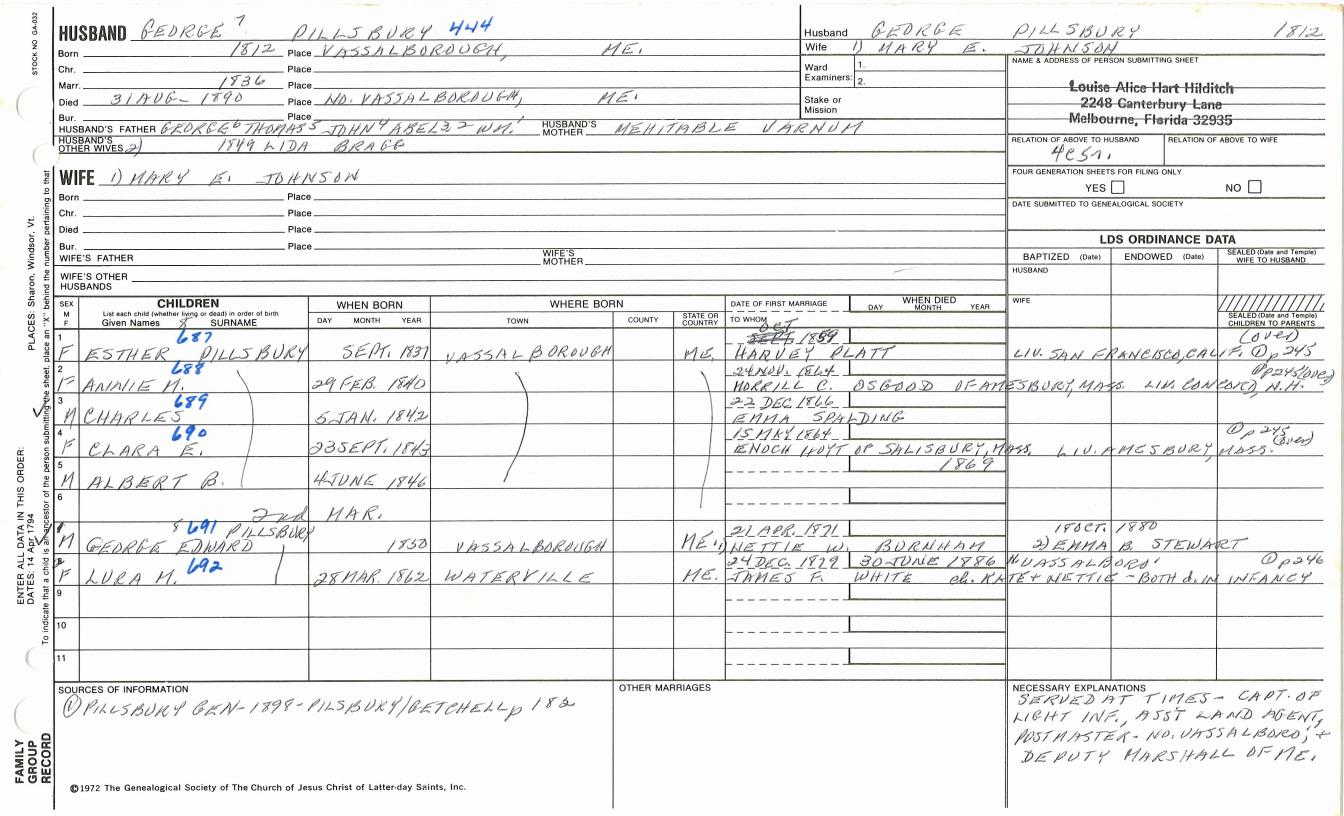 STOCK NO GA-032
HUSBAND GEORGE 7 PILLSBURY 444
Born 1812 Place VASSALBOROUGH, ME.
Chr. Place
Marr. 1836 Place
Died 31 AUG - 1890 Place NO. VASSALBOROUGH, ME.
Bur. Place
HUSBAND'S FATHER GEORGE 6 THOMAS 5 JOHN 4 ABEL 3 2 WM. 1 HUSBAND'S MOTHER MEHITABLE VARNUM
HUSBAND'S OTHER WIVES 2) 1849 LIDA BRAGG
Husband GEORGE PILLSBURY 1812
Wife 1) MARY E. JOHNSON
Ward Examiners: 1.
2.
Stake or Mission
NAME & ADDRESS OF PERSON SUBMITTING SHEET
Louise Alice Hart Hilditch
2248 Canterbury Lane
Melbourne, Florida 32935
RELATION OF ABOVE TO HUSBAND RELATION OF ABOVE TO WIFE
FOUR GENERATION SHEETS FOR FILING ONLY
YES NO
DATE SUBMITTED TO GENEALOGICAL SOCIETY
WIFE 1) MARY E. JOHNSON
Born Place
Chr. Place
Died Place
Bur. Place
WIFE'S FATHER WIFE'S MOTHER
WIFE'S OTHER HUSBANDS
LDS ORDINANCE DATA
BAPTIZED (Date) ENDOWED (Date) SEALED (Date and Temple) WIFE TO HUSBAND
HUSBAND
WIFE
SEALED (Date and Temple) CHILDREN TO PARENTS
SEX M F
CHILDREN
List each child (whether living or dead) in order of birth
Given Names 8 SURNAME
WHEN BORN
DAY MONTH YEAR
WHERE BORN
TOWN COUNTY STATE OR COUNTRY
DATE OF FIRST MARRIAGE
TO WHOM
WHEN DIED
DAY MONTH YEAR
1 687 OCT SEPT. 1859 (over)
F ESTHER PILLSBURY SEPT. 1837 VASSALBOROUGH ME. HARVEY PLATT LIV. SAN FRANCISCO, CALIF. ① p 245
2 688 24 NOV. 1864 ① p 245 (over)
F ANNIE M. 29 FEB. 1840 MORRILL C. OSGOOD OF AMESBURY, MASS. LIV. CONCORD, N.H.
3 689 22 DEC. 1866
M CHARLES 5 JAN. 1842 EMMA SPALDING
4 690 15 MAY 1864 ① p 245 (over)
F CLARA E. 23 SEPT. 1843 ENOCH HOYT OF SALISBURY, MASS, LIV. AMESBURY, MASS.
5 1869
M ALBERT B. 4 JUNE 1846
6
2nd MAR.
8 691 PILLSBURY 21 APR. 1871 18 OCT. 1880
M GEORGE EDWARD 1850 VASSALBOROUGH ME. 1) NETTIE W. BURNHAM 2) EMMA B. STEWART
692 24 DEC. 1879 30 JUNE 1886 N. VASSALBORO' ① p 246
F LURA M. 28 MAR. 1862 WATERVILLE ME. JAMES F. WHITE ch. KATE + NETTIE - BOTH d. IN INFANCY
9
10
11
SOURCES OF INFORMATION
① PILLSBURY GEN - 1898 - PILSBURY/GETCHELL p 182
OTHER MARRIAGES
NECESSARY EXPLANATIONS
SERVED AT TIMES - CAPT. OF
LIGHT INF., ASS'T LAND AGENT,
POSTMASTER - NO. VASSALBORO', +
DEPUTY MARSHALL OF ME.
©1972 The Genealogical Society of The Church of Jesus Christ of Latter-day Saints, Inc.
FAMILY GROUP RECORD
ENTER ALL DATA IN THIS ORDER:
DATES: 14 Apr 1794
PLACES: Sharon, Windsor, Vt.
To indicate that a child is an ancestor of the person submitting the sheet, place an "X" behind the number pertaining to that